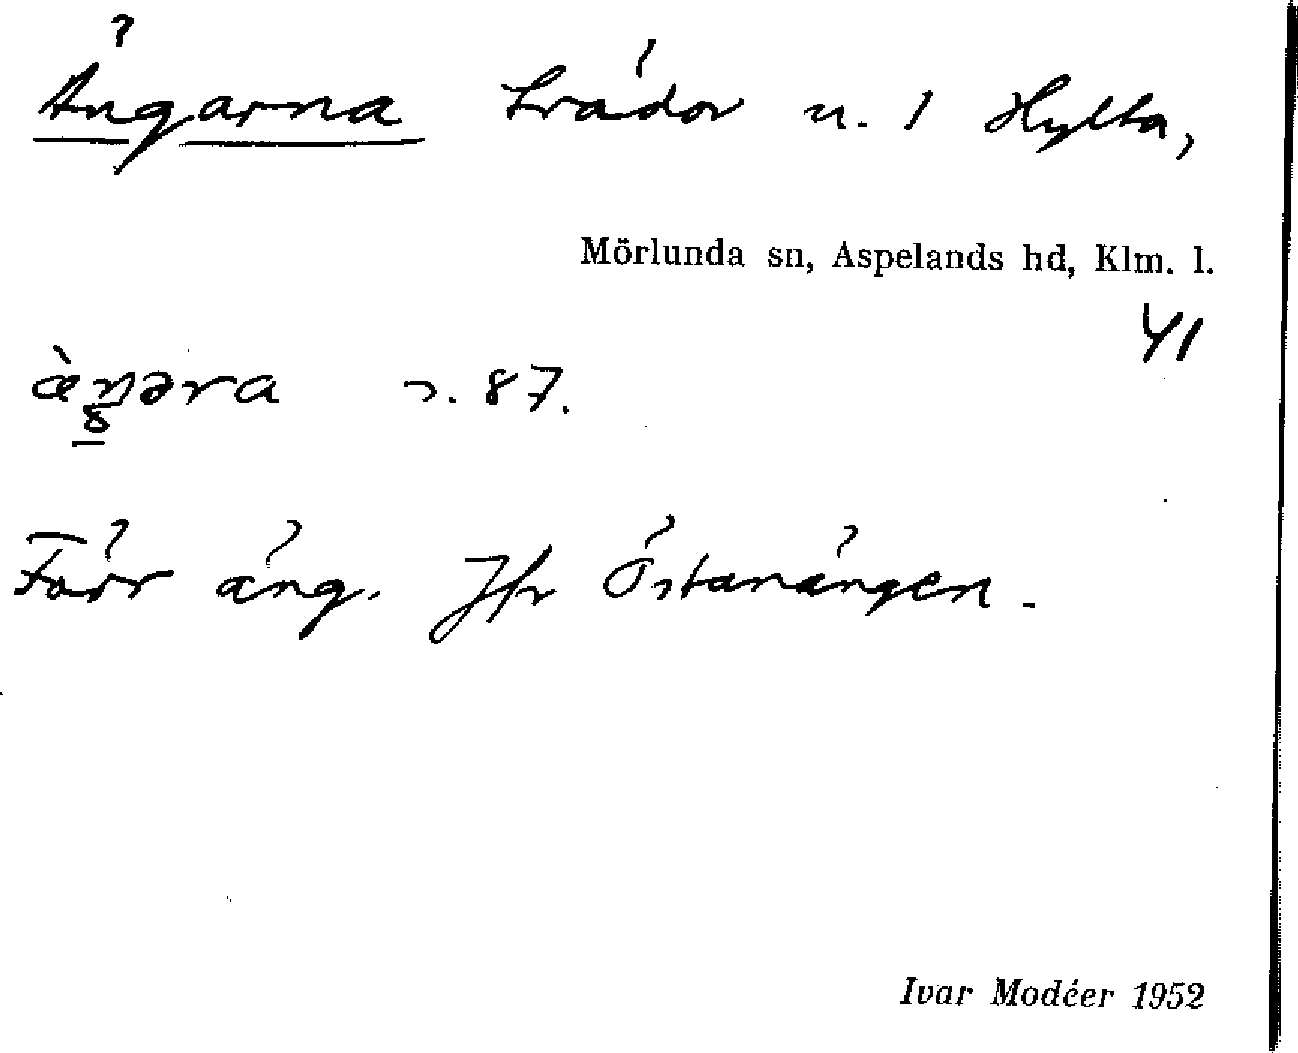 Ängarna Lrådor n. 1 Hylta,
Mörlunda sn, Aspelands hd, Klm. l.
41
æ̀ŋəra n. 87.
Förr äng. Jfr Östanängen.
Ivar Modéer 1952